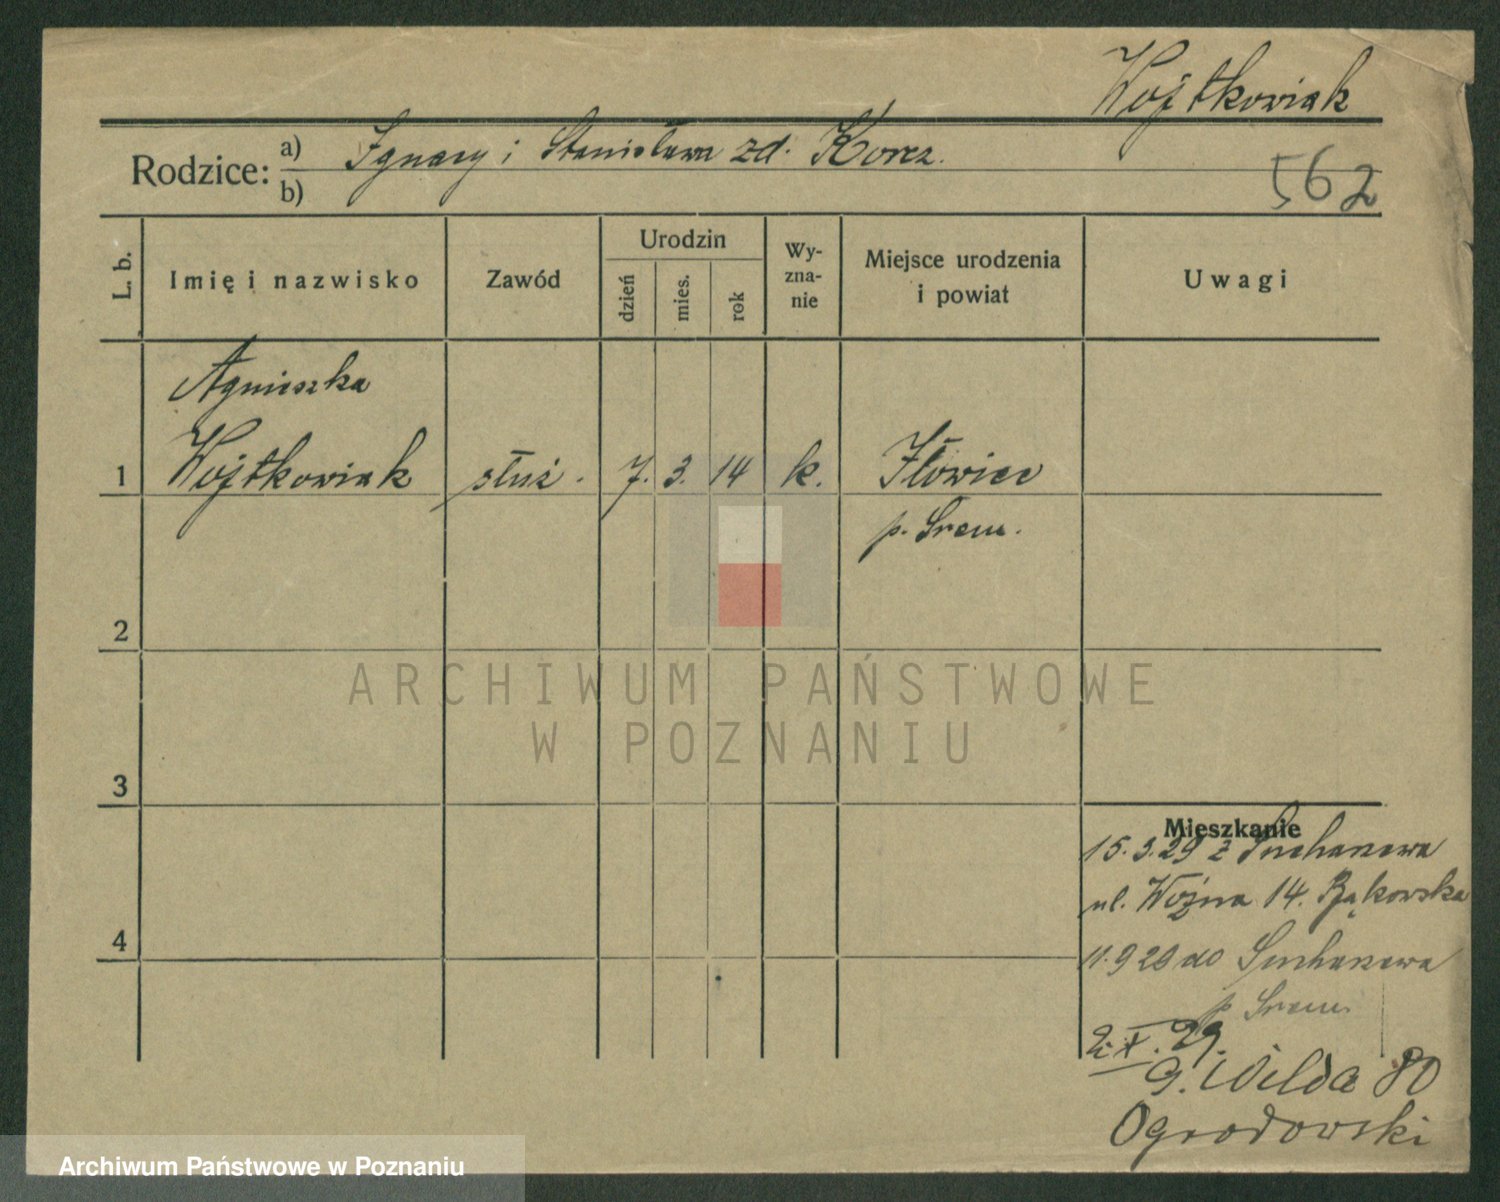 Wojtkowiak
Rodzice: a) Ignacy i Stanisława zd. Korcz.
b)
562
L. b. Imię i nazwisko Zawód Urodzin dzień mies. rok Wy-zna-nie Miejsce urodzenia i powiat Uwagi
Agnieszka
1 Wojtkowiak służ. 7. 3. 14 k. Iłowiec
p. Śrem.
2
3
4
Mieszkanie
15.3.29 z Suchanowa
ul. Woźna 14. Bąkowska
11.9 29 do Suchanowa
p Śrem.
2. X. 29.
G. Wilda 80
Ogrodowski
ARCHIWUM PAŃSTWOWE
W POZNANIU
Archiwum Państwowe w Poznaniu